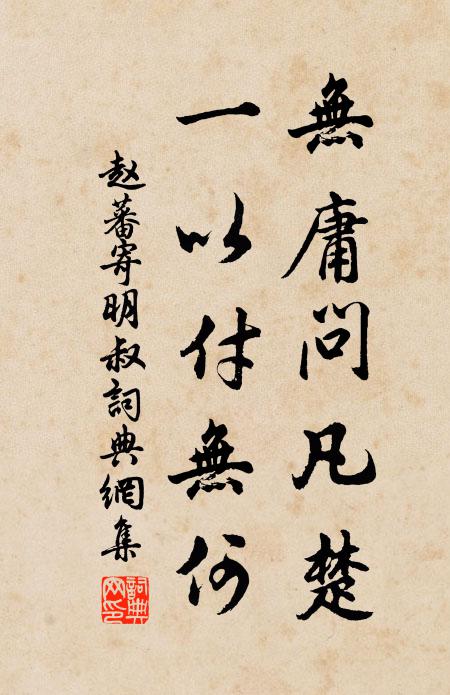 無庸問凡楚
一以付無何
赵蕃寄明叔詞典網集
詞典網印